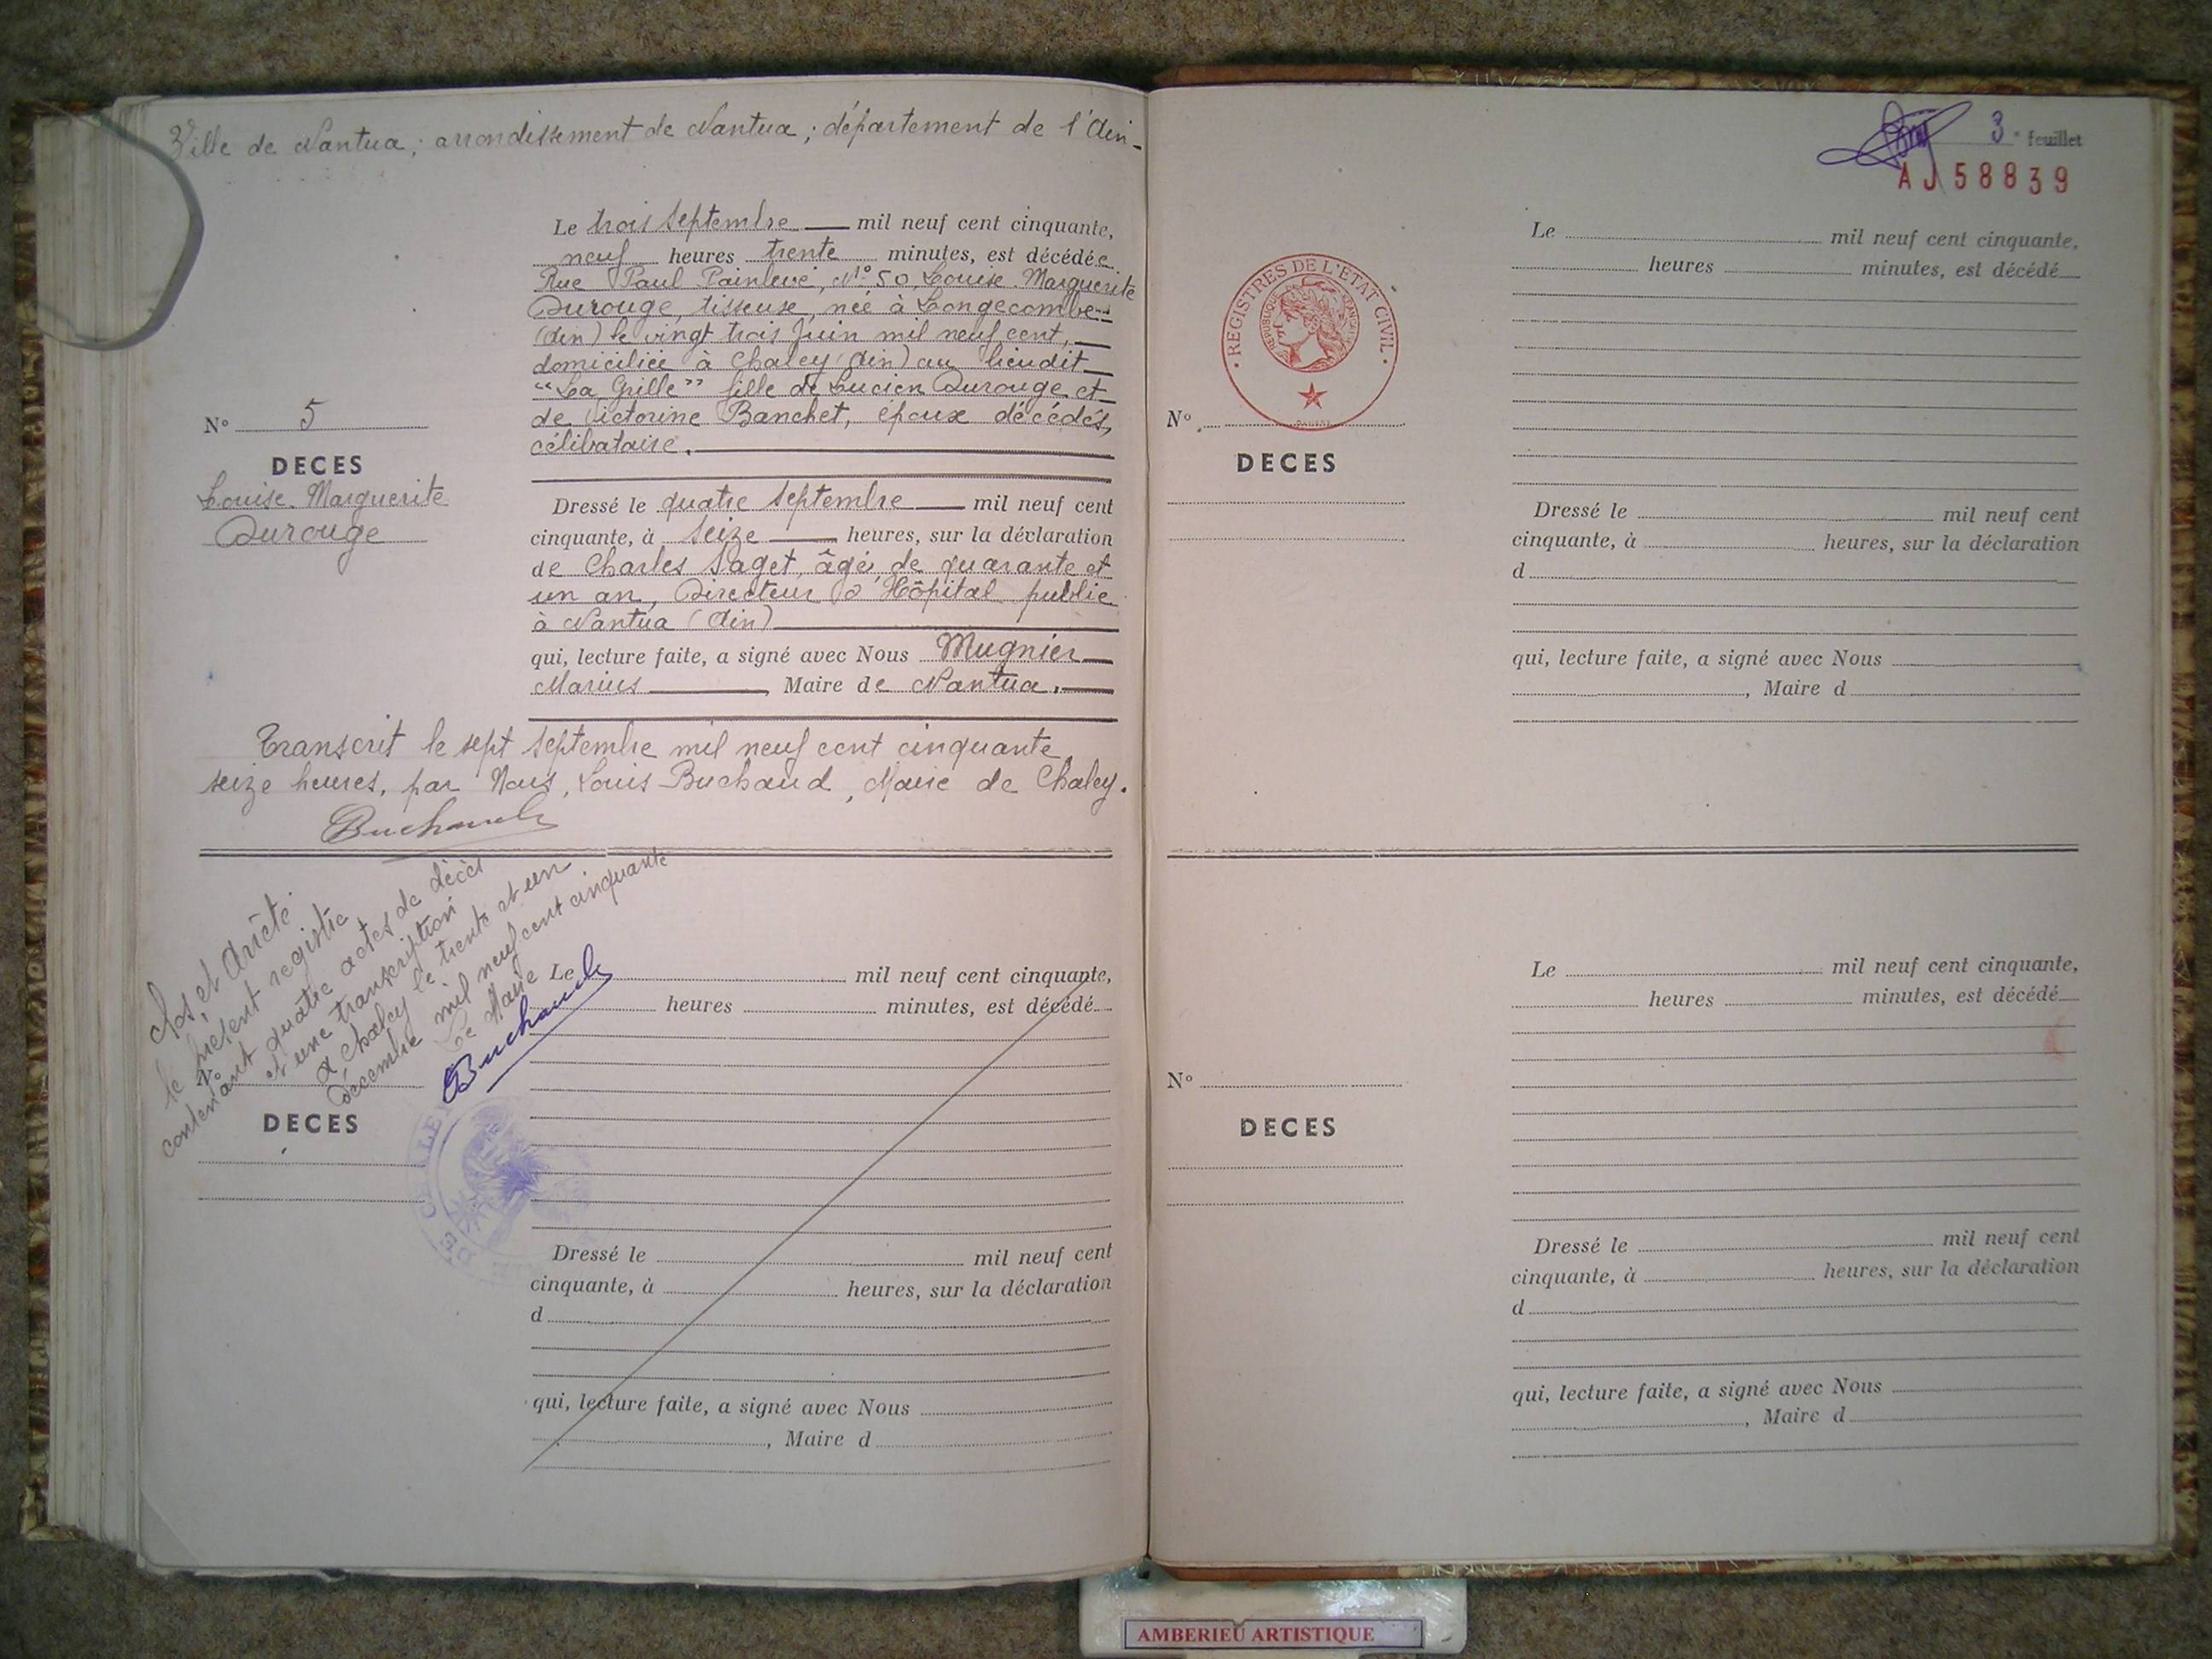 Ville de Nantua ; arrondissement de Nantua ; département de l'Ain -
Le trois septembre mil neuf cent cinquante,
neuf heures trente minutes, est décédée
Rue Paul Painlevé, N° 50, Louise Marguerite
Durouge, tisseuse, née à Longecombe
(Ain) le vingt trois Juin mil neuf cent,
domiciliée à Chaley (Ain) au lieudit
"La Grille" fille de Lucien Durouge et
de Victorine Banchet, époux décédés,
célibataire.
N° 5
DECES
Louise Marguerite
Durouge
Dressé le quatre septembre mil neuf cent
cinquante, à seize heures, sur la déclaration
de Charles Saget, âgé de quarante et
un an, Directeur d'Hôpital public
à Nantua (Ain)
qui, lecture faite, a signé avec Nous Mugnier
Marius, Maire de Nantua.
Transcrit le sept septembre mil neuf cent cinquante
seize heures, par Nous, Louis Buchaud, Maire de Chaley.
Buchaud
Clos et Arrêté
le présent registre
contenant quatre actes de décès
et une transcription
à Chaley le trente et un
décembre mil neuf cent cinquante
Le Maire
Buchaud
N°
DECES
Le mil neuf cent cinquante,
heures minutes, est décédé
Dressé le mil neuf cent
cinquante, à heures, sur la déclaration
d
qui, lecture faite, a signé avec Nous
, Maire d
3e feuillet
AJ 58839
REGISTRES DE L'ETAT CIVIL
REPUBLIQUE FRANCAISE
Le mil neuf cent cinquante,
heures minutes, est décédé
N°
DECES
Dressé le mil neuf cent
cinquante, à heures, sur la déclaration
d
qui, lecture faite, a signé avec Nous
, Maire d
Le mil neuf cent cinquante,
heures minutes, est décédé
N°
DECES
Dressé le mil neuf cent
cinquante, à heures, sur la déclaration
d
qui, lecture faite, a signé avec Nous
, Maire d
AMBERIEU ARTISTIQUE